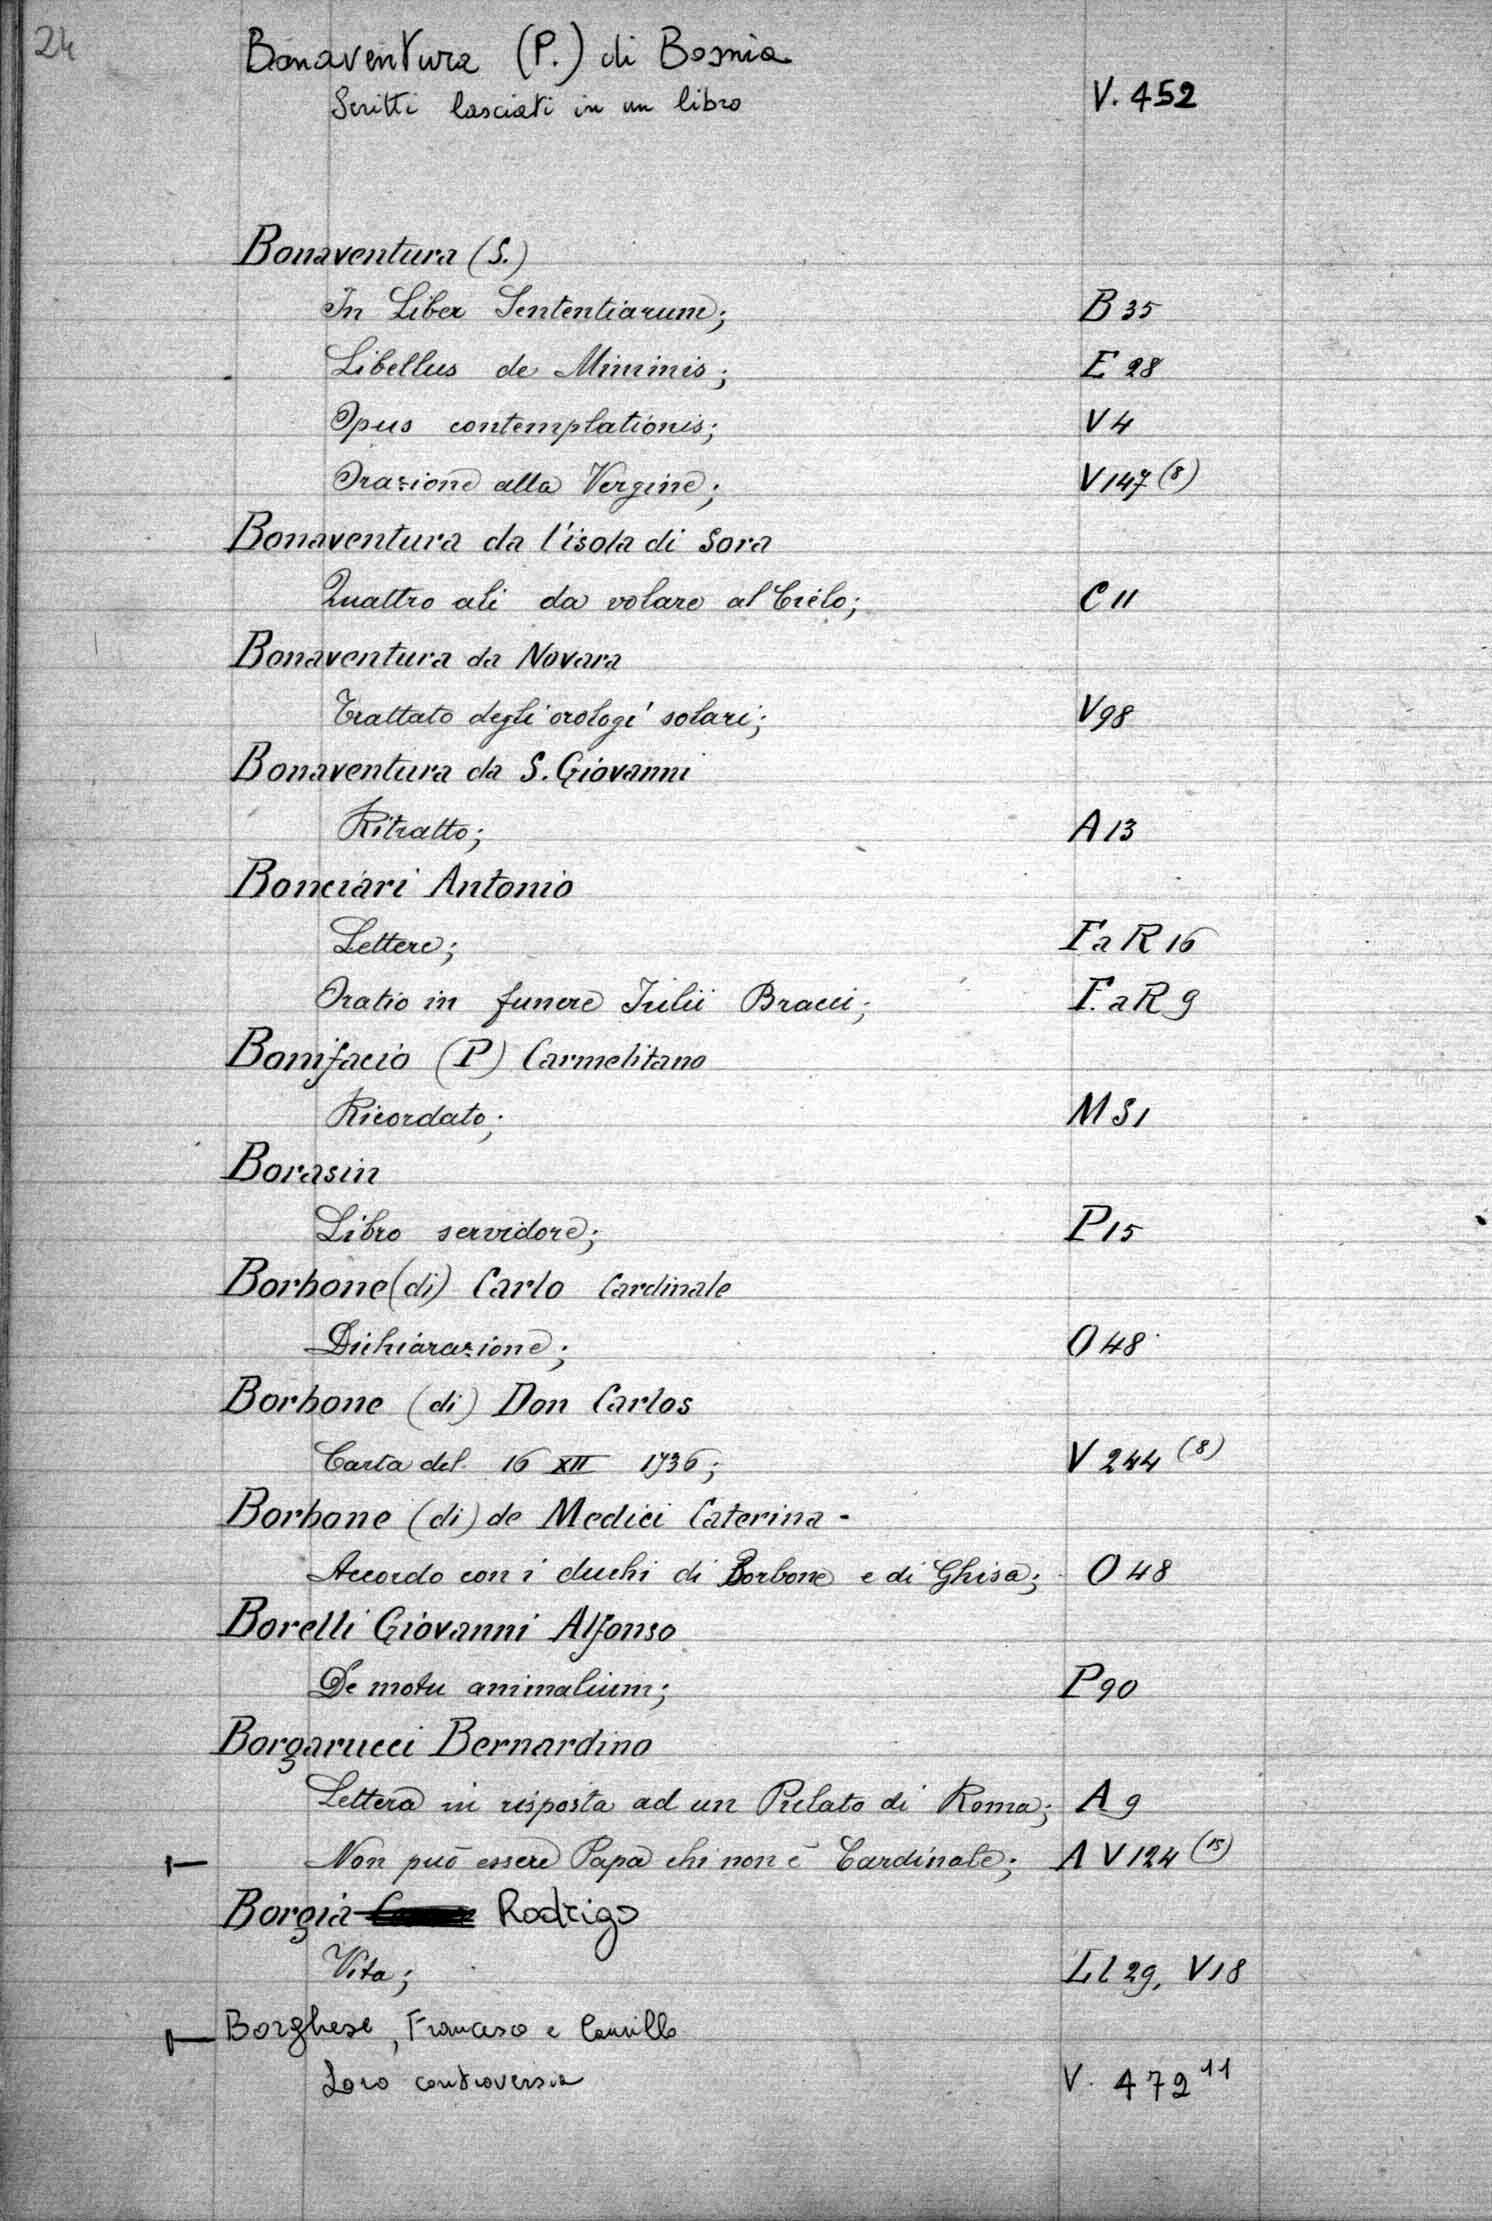 24
Bonaventura (P.) di Bosnia
Scritti lasciati in un libro V. 452
Bonaventura (S.)
In Liber Sententiarum; B 35
Libellus de Miminis; E 28
Opus contemplationis; V 4
Orazione alla Vergine; V 147 (8)
Bonaventura da l'isola di Sora
Quattro ali da volare al Cielo; C 11
Bonaventura da Novara
Trattato degli orologi solari; V 98
Bonaventura da S. Giovanni
Ritratto; A 13
Bonciari Antonio
Lettere; Fa R 16
Oratio in funere Julii Bracci; F. a R 9
Bonifacio (P) Carmelitano
Ricordato; M S 1
Borasin
Libro servidore; P 15
Borbone (di) Carlo Cardinale
Dichiarazione; O 48
Borbone (di) Don Carlos
Carta del 16 XII 1736; V 244 (8)
Borbone (di) de Medici Caterina -
Accordo con i duchi di Borbone e di Ghisa; O 48
Borelli Giovanni Alfonso
De motu animalium; P 90
Borgarucci Bernardino
Lettera in risposta ad un Prelato di Roma; A 9
Non può essere Papa chi non è Cardinale; A V 124 (15)
Borgia Rodrigo
Vita; L l 29, V 18
Borghese, Francesco e Camillo
Loro controversia V. 472 11